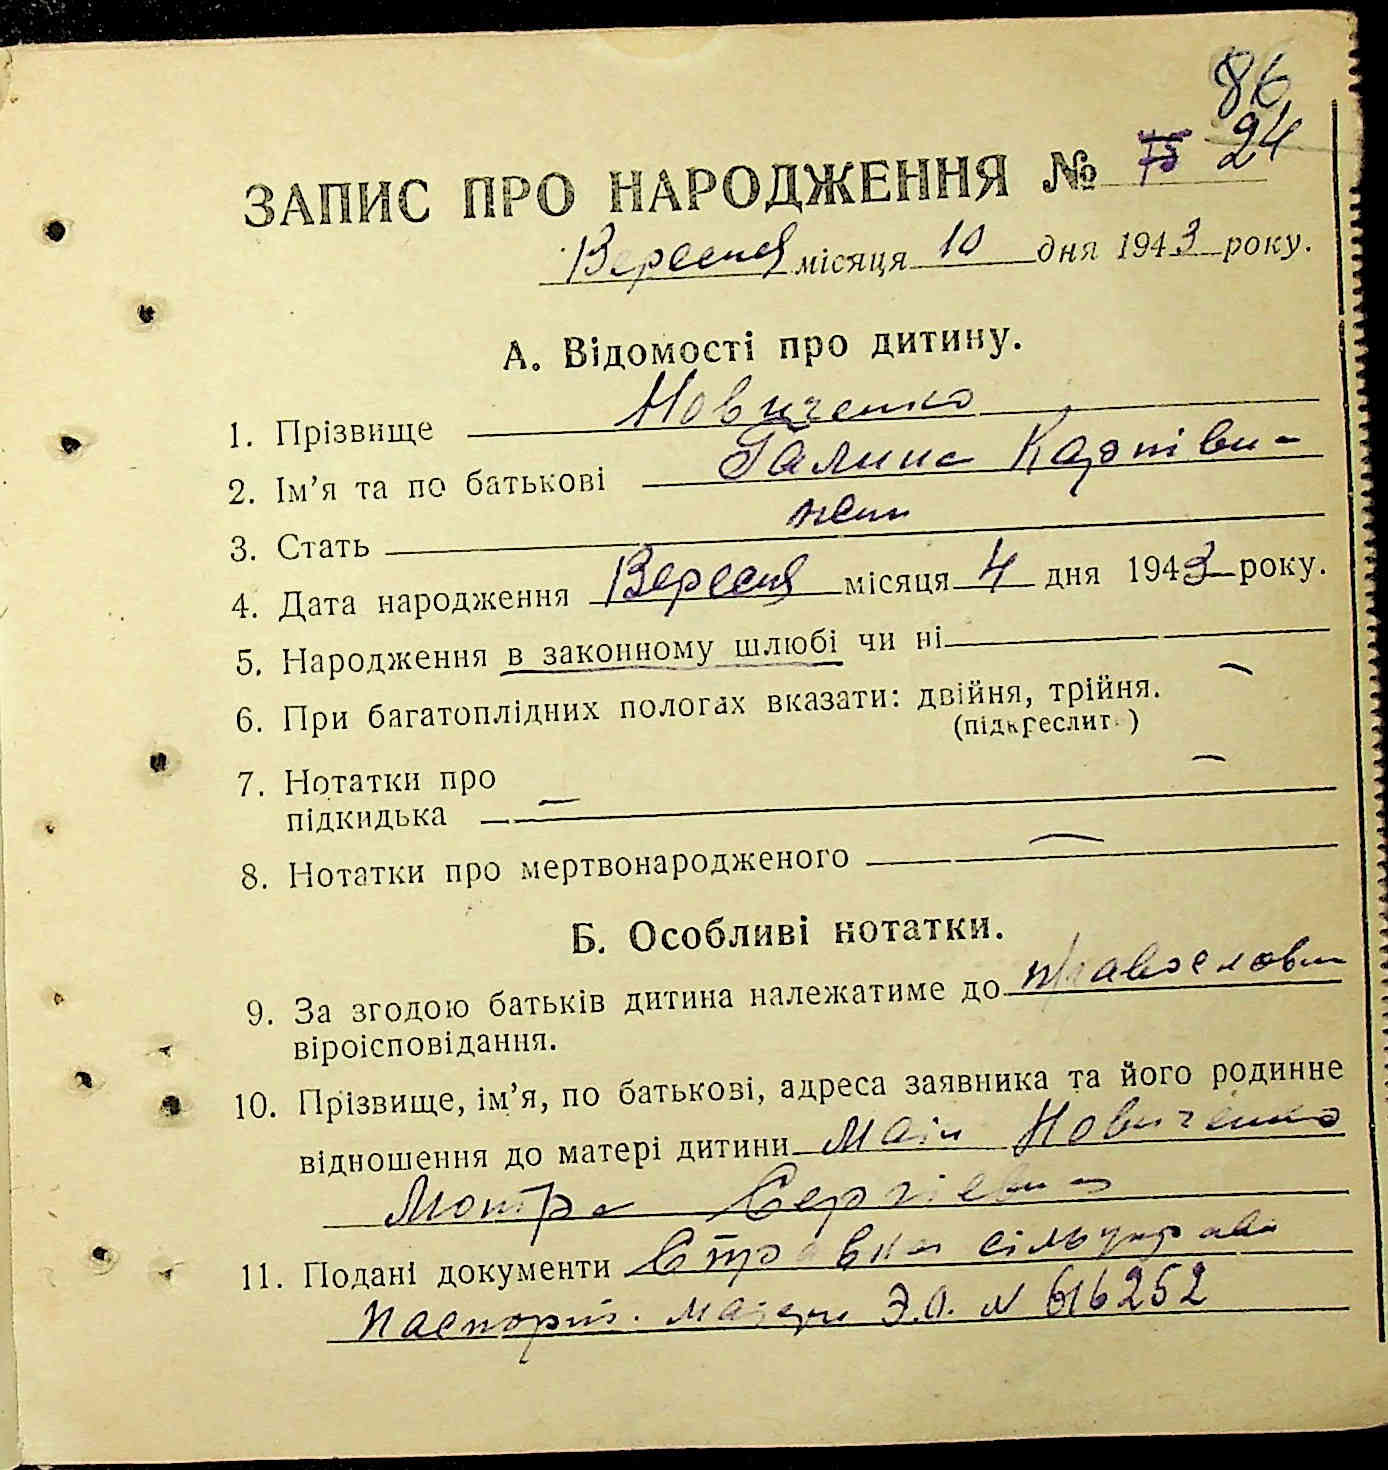 86
ЗАПИС ПРО НАРОДЖЕННЯ № 75 24
Вересня місяця 10 дня 1943 року.
А. Відомості про дитину.
1. Прізвище Новиченко
2. Ім'я та по батькові Галина Карпівн-
3. Стать жен
4. Дата народження Вересня місяця 4 дня 1943 року.
5. Народження в законному шлюбі чи ні
6. При багатоплідних пологах вказати: двійня, трійня.
(підкреслит )
7. Нотатки про
підкидька —
8. Нотатки про мертвонародженого —
Б. Особливі нотатки.
9. За згодою батьків дитина належатиме до православн
віроісповідання.
10. Прізвище, ім'я, по батькові, адреса заявника та його родинне
відношення до матері дитини Новиченко
Мотря Сергіевна
11. Подані документи сільуправи
Паспорт. матери Э.О. № 616252